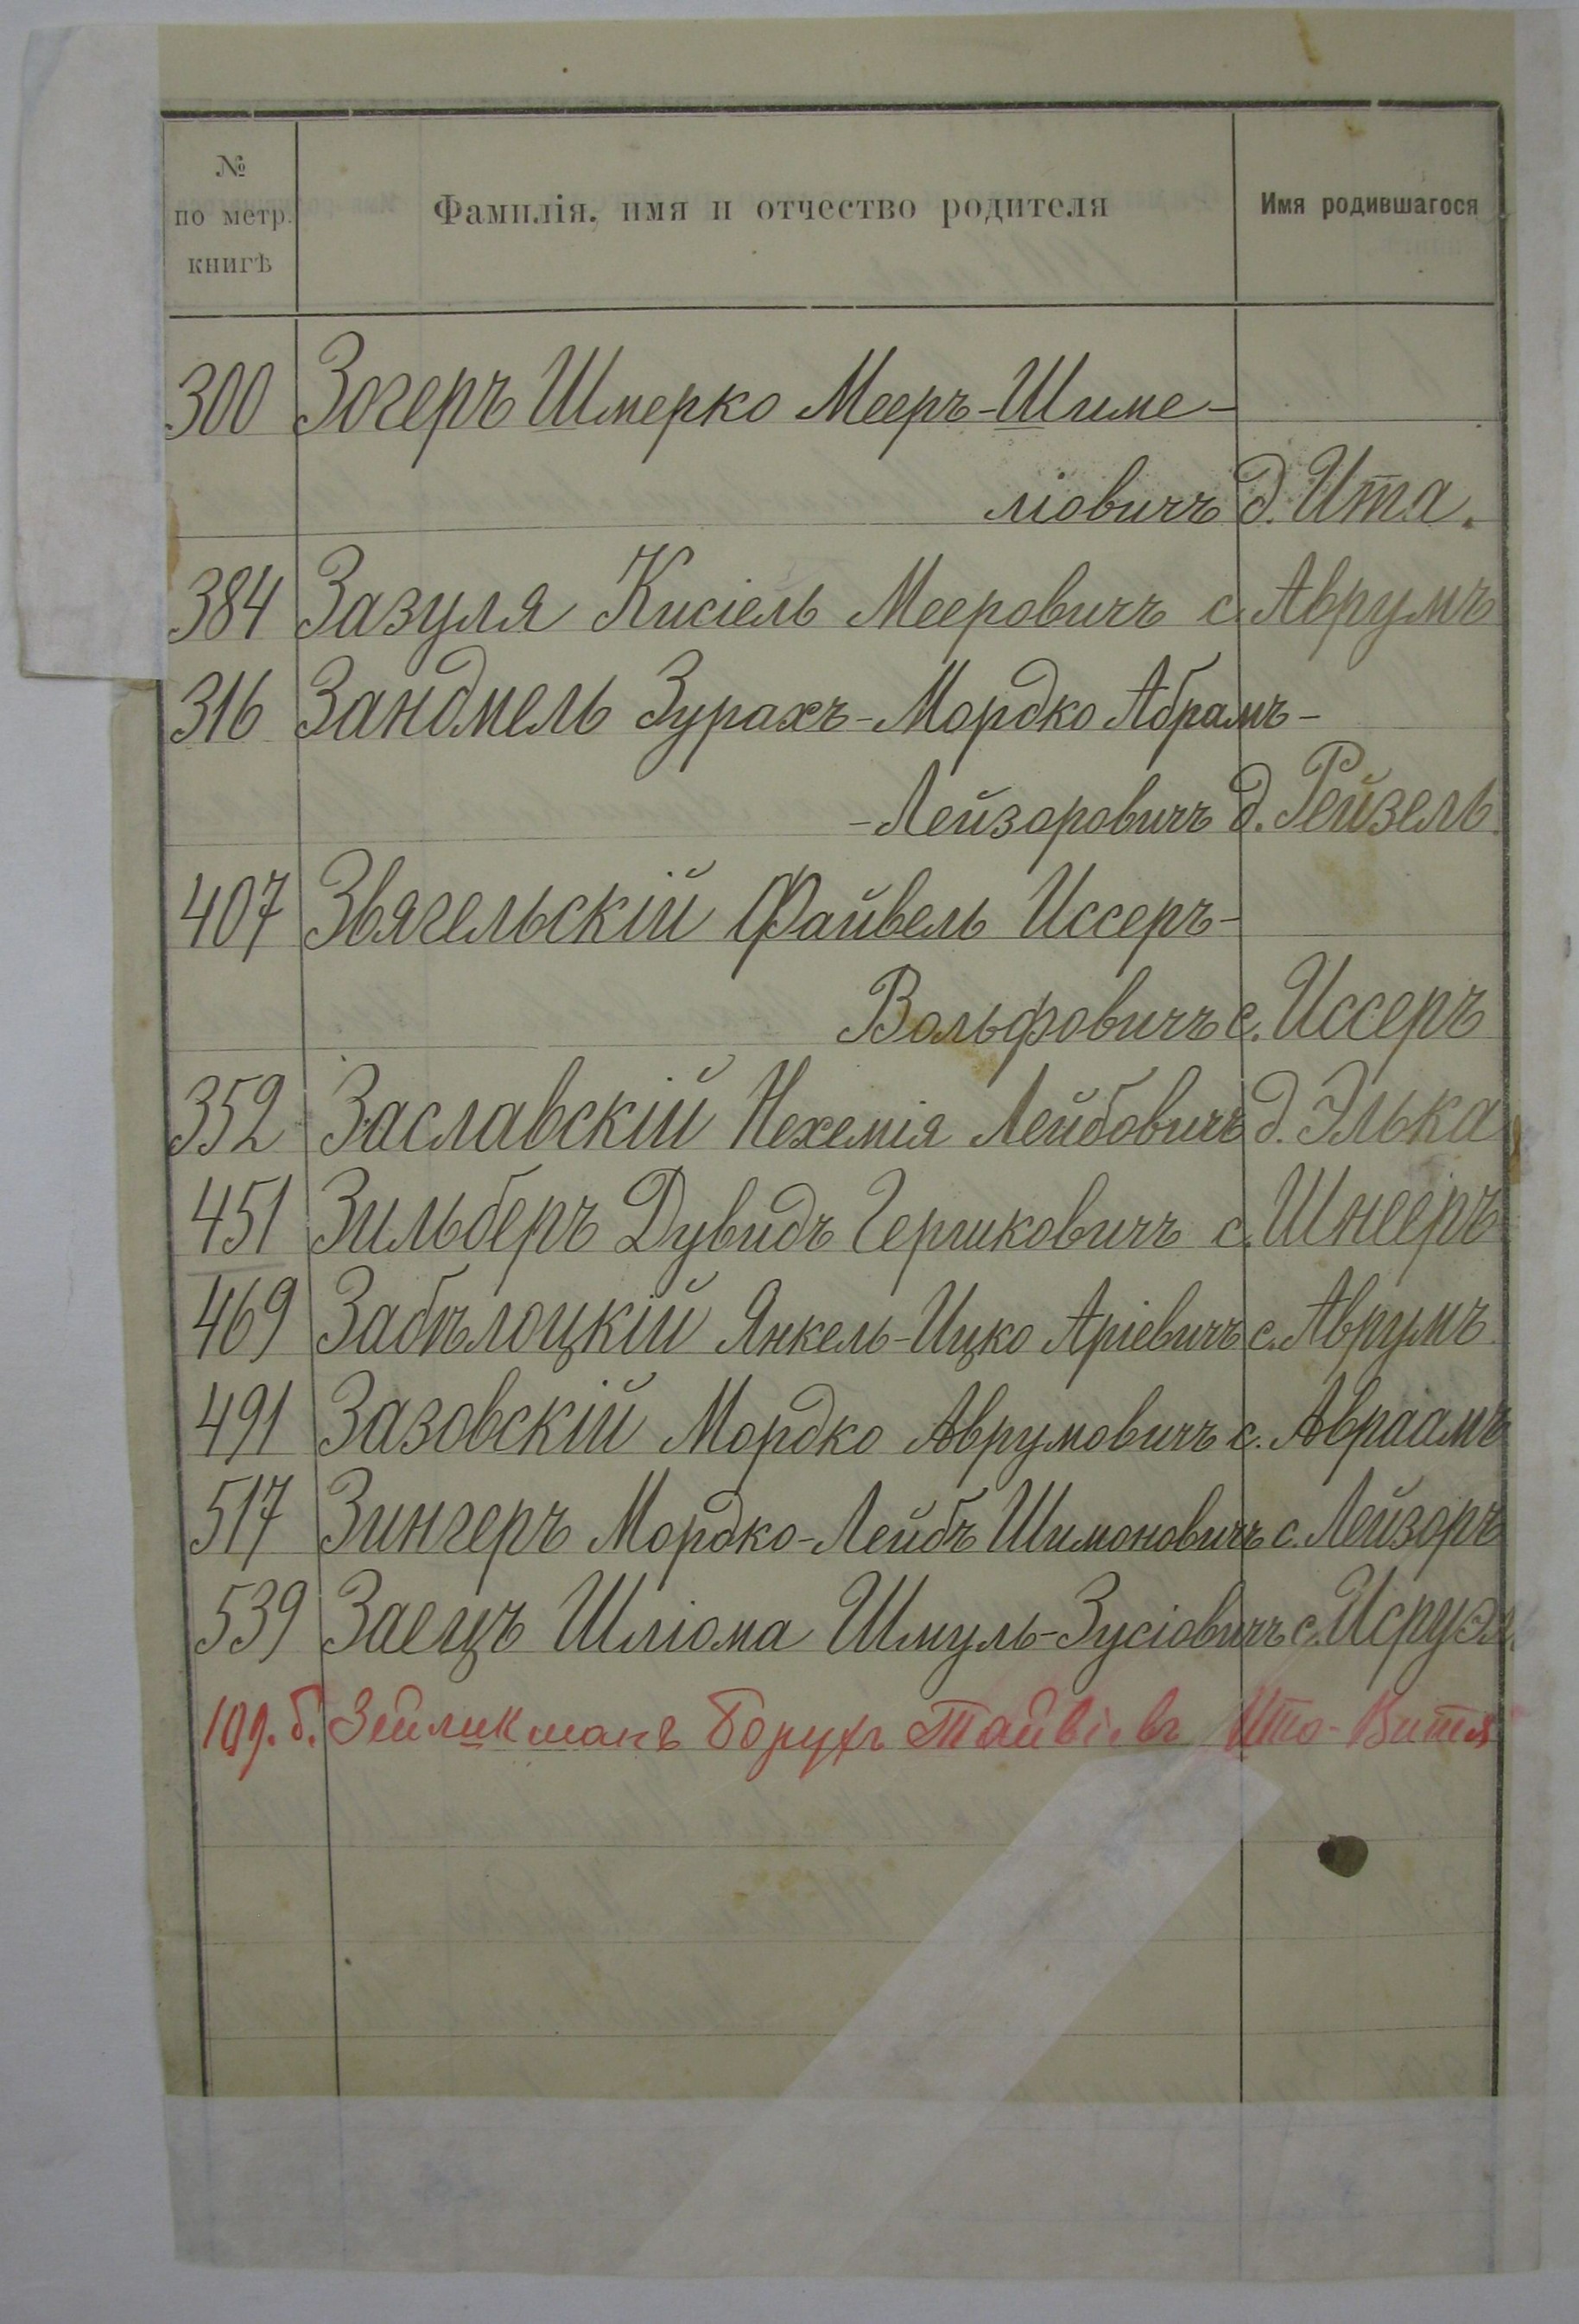 № по метр. книгѣ Фамилія, имя и отчество родителя Имя родившагося
300 Зогеръ Шмерко Мееръ-Шиме-
ліовичъ д. Ита.
384 Зазуля Кисіель Мееровичъ с. Аврумъ
316 Зандмель Зурахъ-Мордко Абрамъ-
-Лейзоровичъ д. Рейзель
407 Звягельскій Файвель Иссеръ-
Вольфовичъ с. Иссеръ
352 Заславскій Нехемія Лейбовичъ д. Элька
451 Зильберъ Дувидъ Гершковичъ с. Шнееръ
469 Забѣлоцкій Янкель-Ицко Аріевичъ с. Аврумъ
491 Зазовскій Мордко Аврумовичъ с. Авраамъ
517 Зингеръ Мордко-Лейбъ Шимоновичъ с. Лейзоръ
539 Заецъ Шліома Шмуль-Зусіовичъ с. Исруэл
109.б. Зейликманъ Борухъ Тайвіевъ Ита-Витя